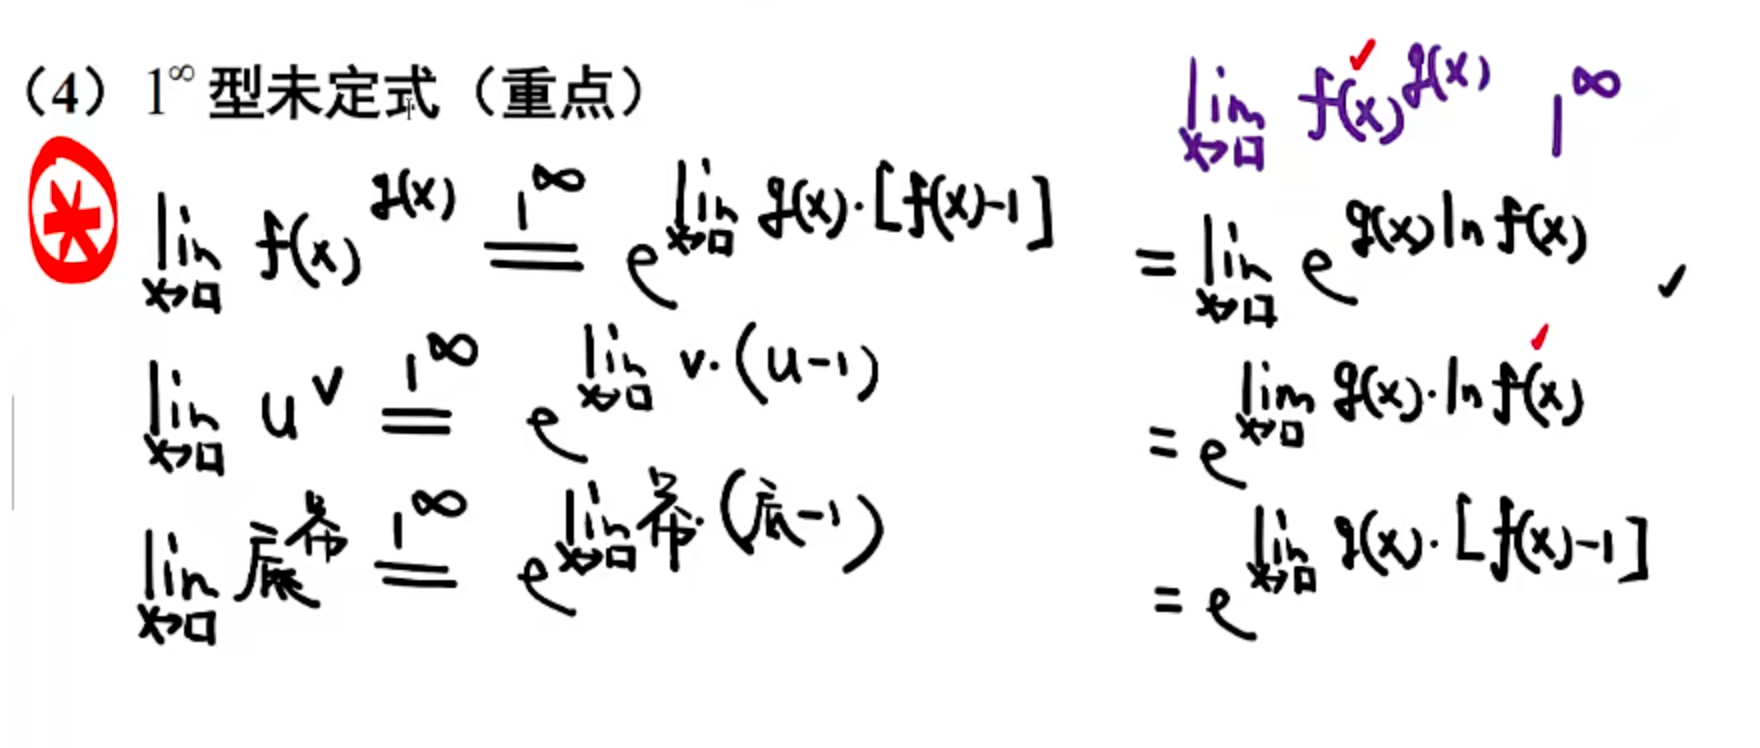 （4）1^∞ 型未定式（重点）
lim_{x→□} f(x)^{g(x)} \overset{1^∞}{=} e^{lim_{x→□} g(x)·[f(x)-1]}
lim_{x→□} u^v \overset{1^∞}{=} e^{lim_{x→□} v·(u-1)}
lim_{x→□} 底^幂 \overset{1^∞}{=} e^{lim_{x→□} 幂·(底-1)}
lim_{x→□} f(x)^{g(x)} 1^∞
= lim_{x→□} e^{g(x) ln f(x)}
= e^{lim_{x→□} g(x)·ln f(x)}
= e^{lim_{x→□} g(x)·[f(x)-1]}